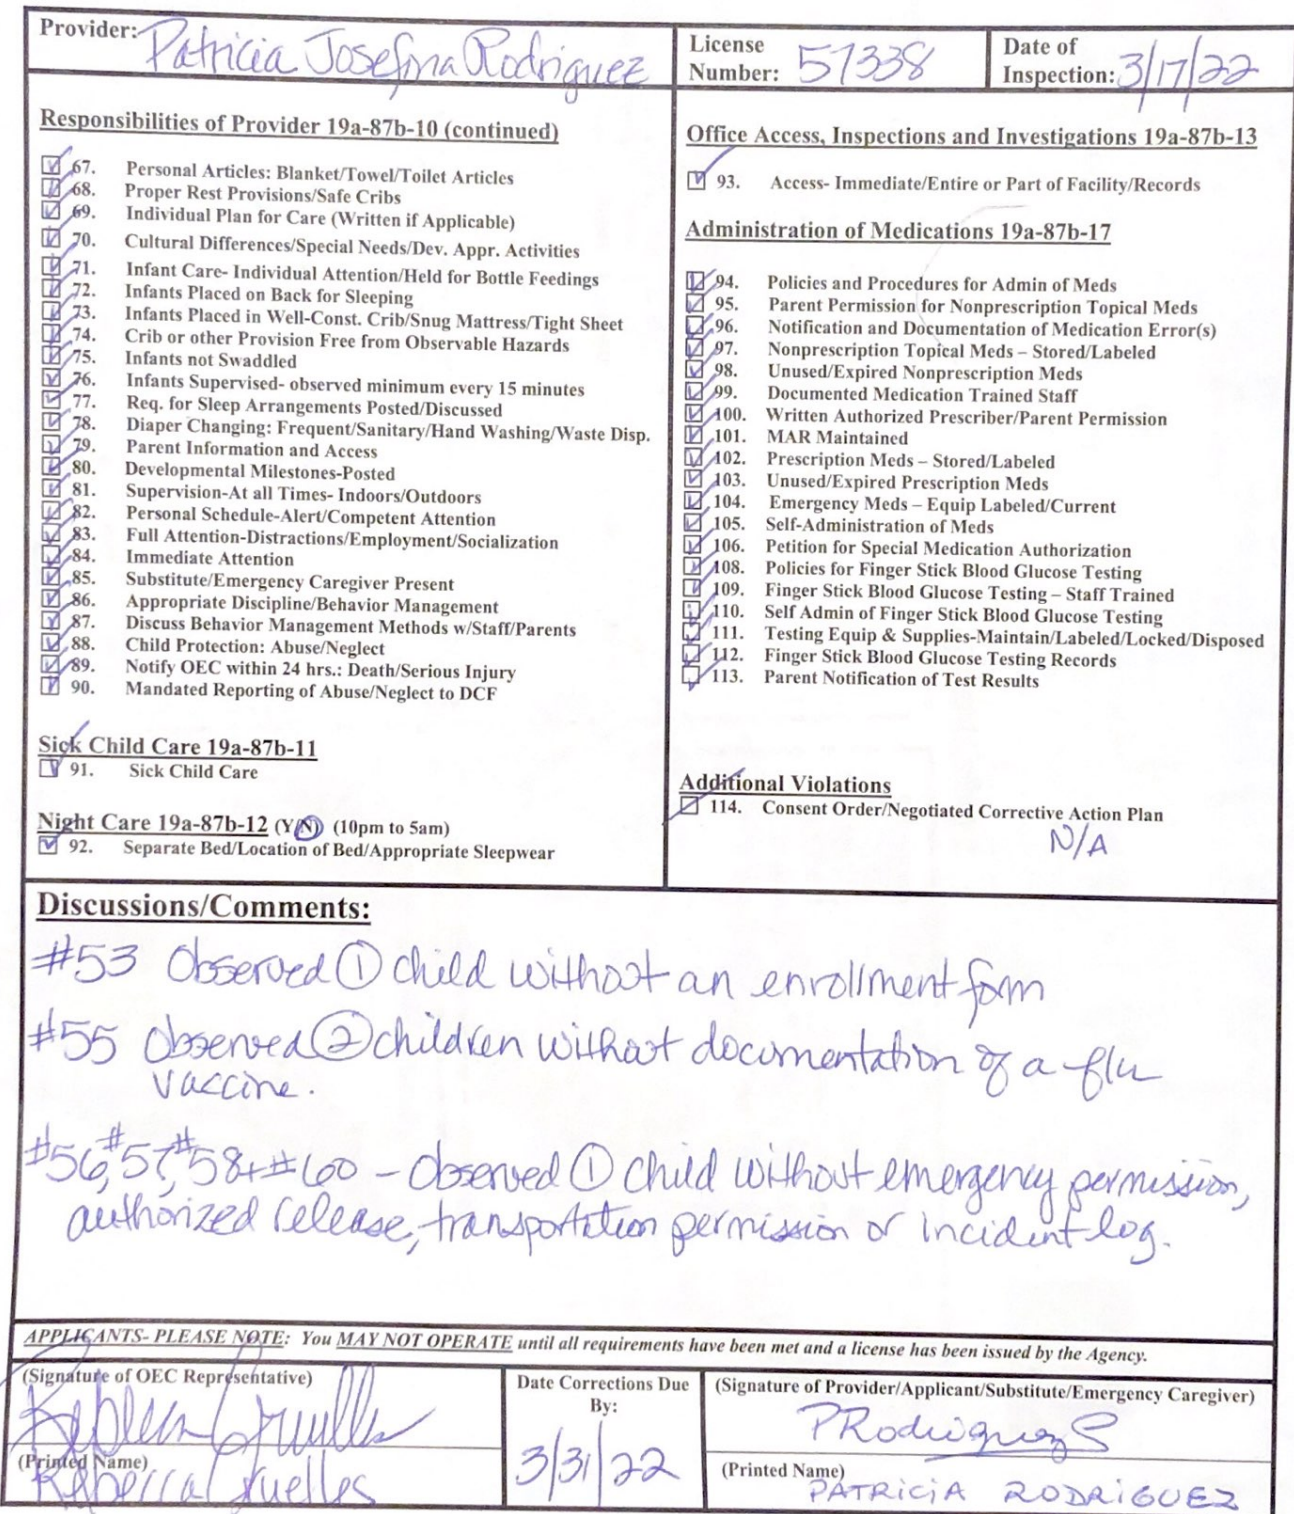 Provider: Patricia Josefina Rodriguez
License Number: 57338
Date of Inspection: 3/17/22
Responsibilities of Provider 19a-87b-10 (continued)
67. Personal Articles: Blanket/Towel/Toilet Articles
68. Proper Rest Provisions/Safe Cribs
69. Individual Plan for Care (Written if Applicable)
70. Cultural Differences/Special Needs/Dev. Appr. Activities
71. Infant Care- Individual Attention/Held for Bottle Feedings
72. Infants Placed on Back for Sleeping
73. Infants Placed in Well-Const. Crib/Snug Mattress/Tight Sheet
74. Crib or other Provision Free from Observable Hazards
75. Infants not Swaddled
76. Infants Supervised- observed minimum every 15 minutes
77. Req. for Sleep Arrangements Posted/Discussed
78. Diaper Changing: Frequent/Sanitary/Hand Washing/Waste Disp.
79. Parent Information and Access
80. Developmental Milestones-Posted
81. Supervision-At all Times- Indoors/Outdoors
82. Personal Schedule-Alert/Competent Attention
83. Full Attention-Distractions/Employment/Socialization
84. Immediate Attention
85. Substitute/Emergency Caregiver Present
86. Appropriate Discipline/Behavior Management
87. Discuss Behavior Management Methods w/Staff/Parents
88. Child Protection: Abuse/Neglect
89. Notify OEC within 24 hrs.: Death/Serious Injury
90. Mandated Reporting of Abuse/Neglect to DCF
Sick Child Care 19a-87b-11
91. Sick Child Care
Night Care 19a-87b-12 (Y/N) (10pm to 5am)
92. Separate Bed/Location of Bed/Appropriate Sleepwear
Office Access, Inspections and Investigations 19a-87b-13
93. Access- Immediate/Entire or Part of Facility/Records
Administration of Medications 19a-87b-17
94. Policies and Procedures for Admin of Meds
95. Parent Permission for Nonprescription Topical Meds
96. Notification and Documentation of Medication Error(s)
97. Nonprescription Topical Meds – Stored/Labeled
98. Unused/Expired Nonprescription Meds
99. Documented Medication Trained Staff
100. Written Authorized Prescriber/Parent Permission
101. MAR Maintained
102. Prescription Meds – Stored/Labeled
103. Unused/Expired Prescription Meds
104. Emergency Meds – Equip Labeled/Current
105. Self-Administration of Meds
106. Petition for Special Medication Authorization
108. Policies for Finger Stick Blood Glucose Testing
109. Finger Stick Blood Glucose Testing – Staff Trained
110. Self Admin of Finger Stick Blood Glucose Testing
111. Testing Equip & Supplies-Maintain/Labeled/Locked/Disposed
112. Finger Stick Blood Glucose Testing Records
113. Parent Notification of Test Results
Additional Violations
114. Consent Order/Negotiated Corrective Action Plan
N/A
Discussions/Comments:
#53 Observed 1 child without an enrollment form
#55 Observed 2 children without documentation of a flu
vaccine.
#56, #57, #58 + #60 - Observed 1 child without emergency permission,
authorized release, transportation permission or incident log.
APPLICANTS- PLEASE NOTE: You MAY NOT OPERATE until all requirements have been met and a license has been issued by the Agency.
(Signature of OEC Representative)
(Printed Name)
Rebecca
Date Corrections Due
By:
3/31/22
(Signature of Provider/Applicant/Substitute/Emergency Caregiver)
PRodriguez
(Printed Name)
PATRICIA RODRIGUEZ